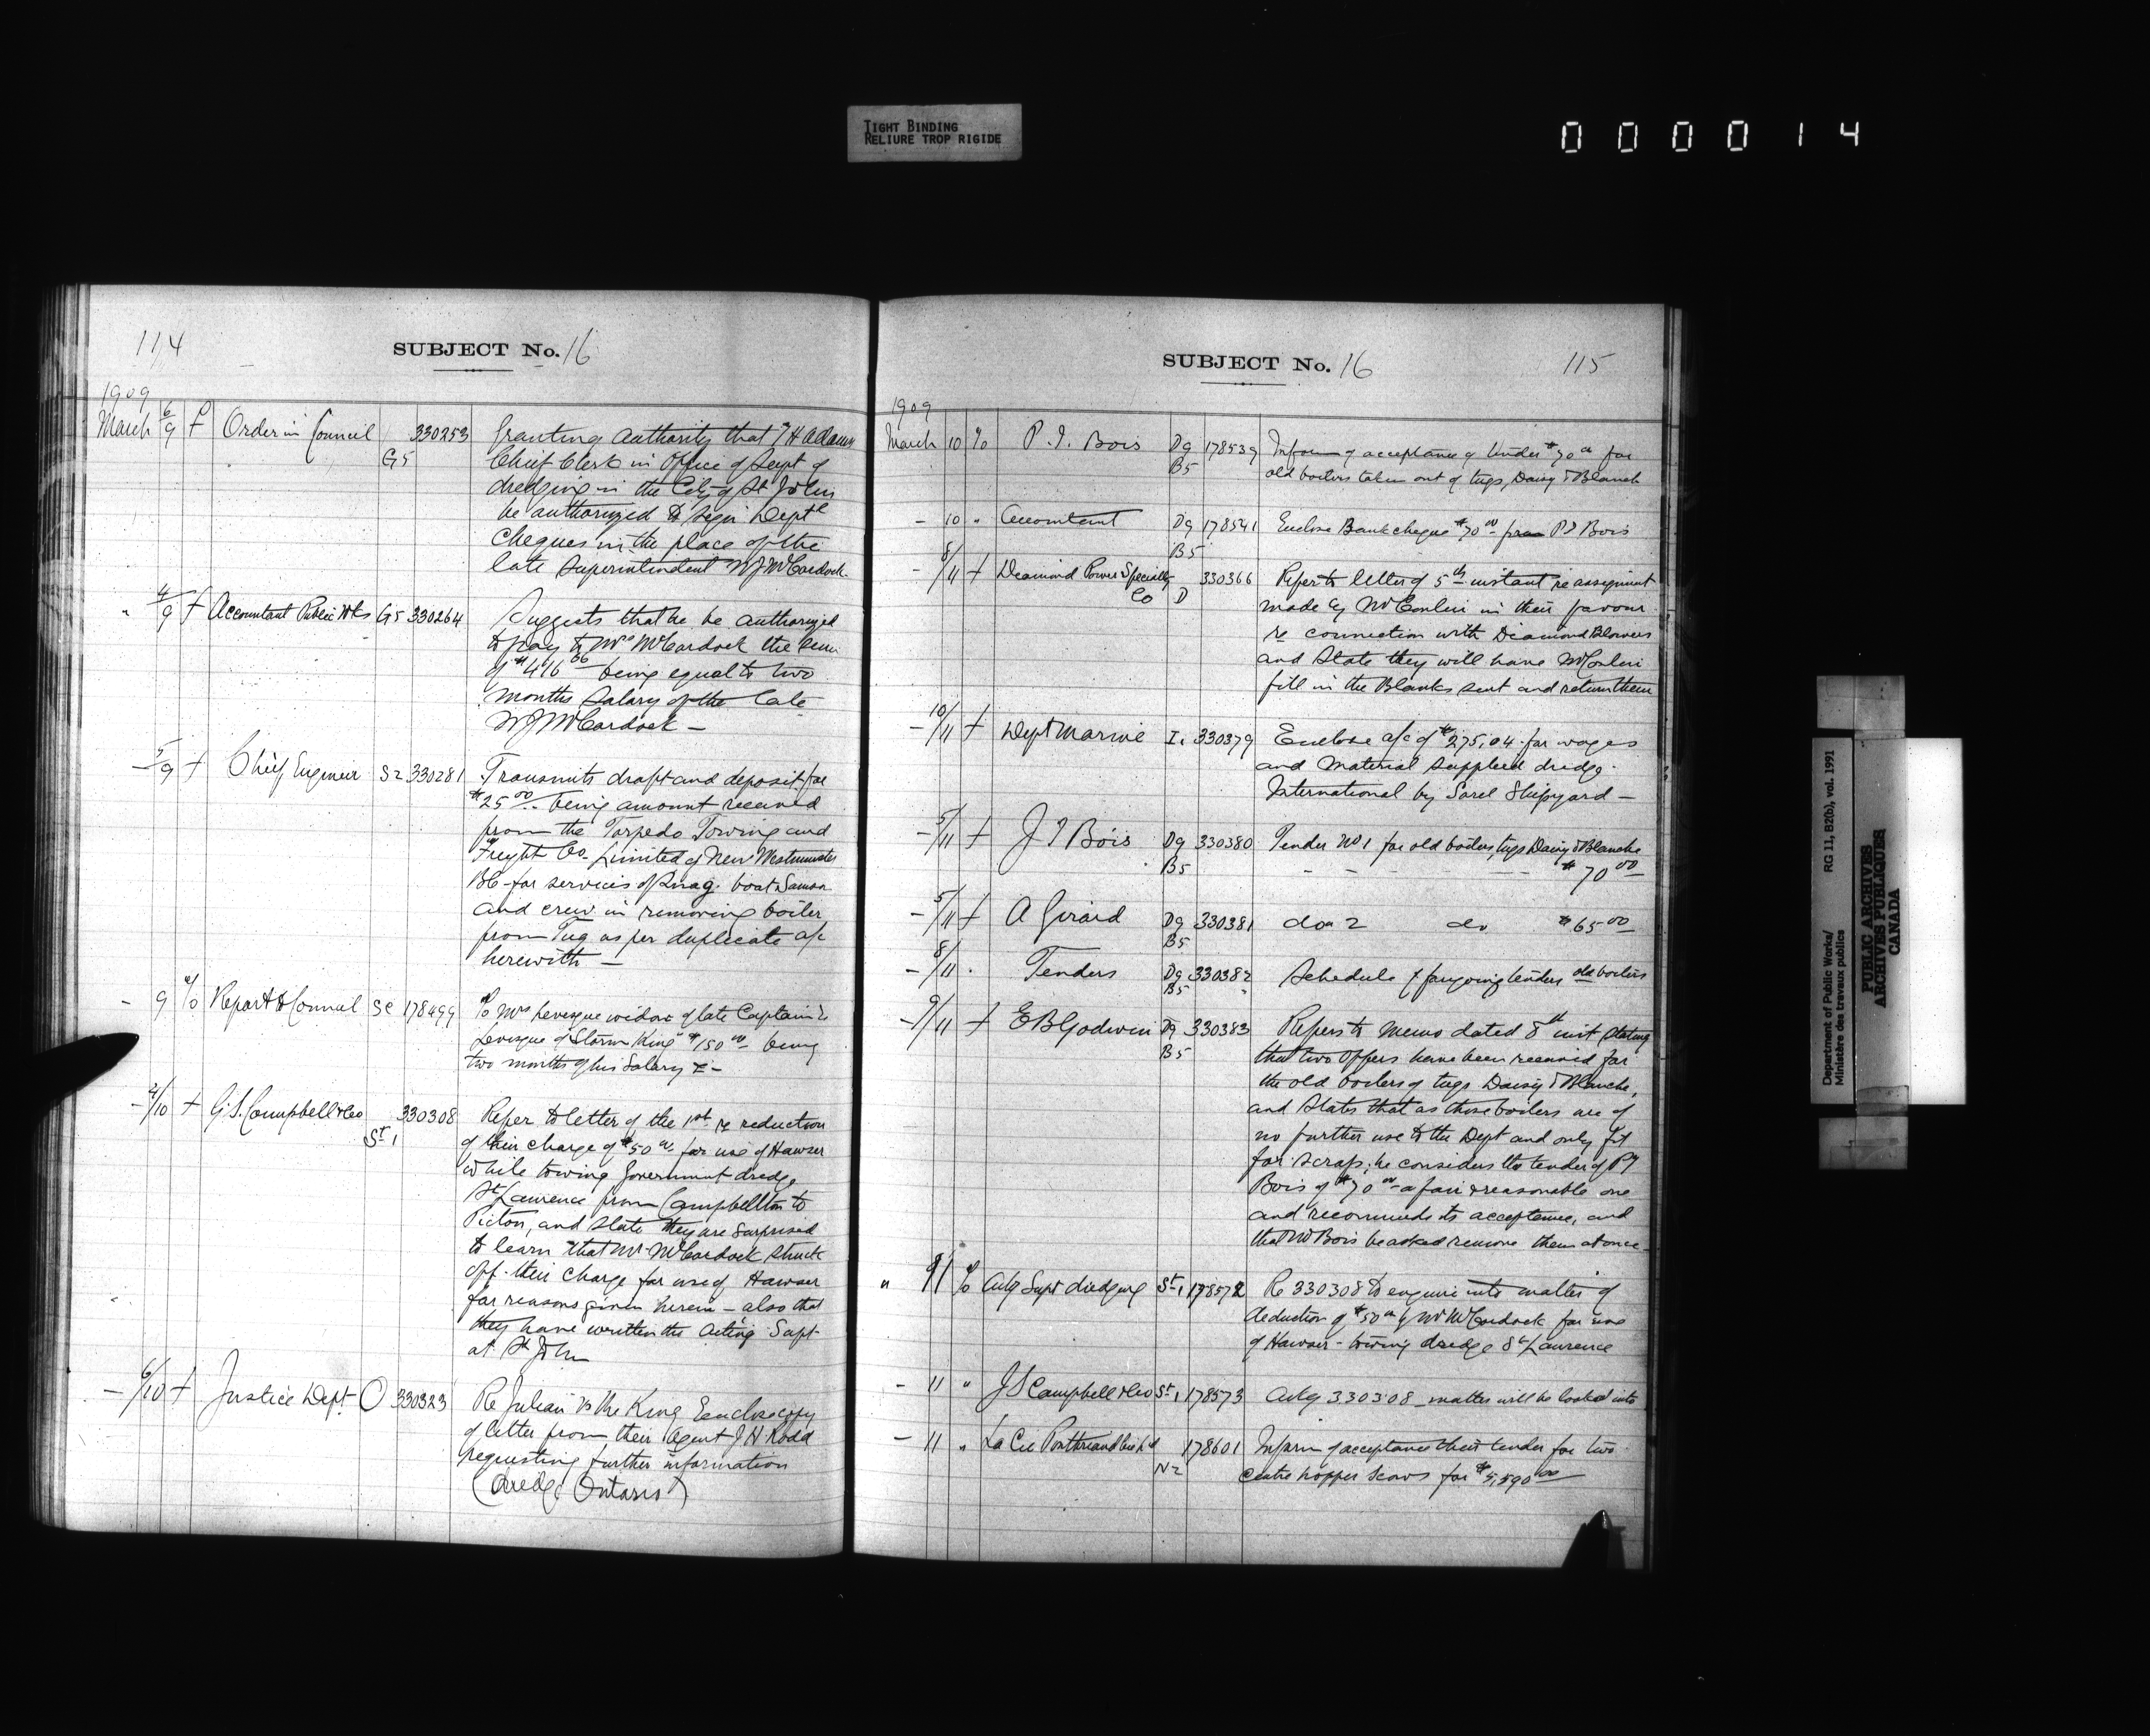 TIGHT BINDING
RELIURE TROP RIGIDE
000014
114
SUBJECT No. 16
1909
March 6/9 f Order in Council G5 330253 Granting authority that J H Adams
Chief Clerk in Office of Supt of
dredging in the City of St John
be authorized to sign Deptl
Cheques in the place of the
late Superintendent W J McCordock.
" 4/9 f Accountant Public Wks G5 330264 Suggests that he be authorized
to pay to Mrs McCordock the sum
of $416 66 being equal to two
months salary of the late
W J McCordock —
— 5/9 f Chief Engineer S2 330281 Transmits draft and deposit for
$25 00 being amount received
from the Torpedo Towing and
Freight Co. Limited of New Westminster
BC for services of Snag boat Samson
and crew in removing boiler
from Tug as per duplicate a/c
herewith —
— 9 o/o Report to Council SC 178499 To Mrs Levesque widow of late Captain
Levesque of "Storm King" $150 00 being
two months of his Salary
— 4/10 f G.S. Campbell & Co St 1 330308 Refer to letter of the 1st re reduction
of their charge of $50 00 for use of Hawser
while towing Government dredge
St Laurence from Campbellton to
Pictou, and state they are surprised
to learn that Mr. McCordock struck
off their charge for use of Hawser
for reasons given herein — also that
they have written the Acting Supt
at St John
— 6/10 f Justice Dept O 330323 Re Julian vs the King Enclose copy
of letter from their agent J H Rodd
requesting further information
(Dredge Ontario)
SUBJECT No. 16
115
1909
March 10 o/o P. T. Bois Dg B5 178539 Inform of acceptance of tender $70 00 for
old boilers taken out of tugs, Daisy & Blanch
— 10 " Accountant Dg B5 178541 Enclose Bank cheque $70 00 from P T Bois
— 8/11 f Diamond Power Specialty Co D 330366 Refer to letter of 5th instant re assignment
made by Mr Conlin in their favour
re connection with Diamond Blowers
and state they will have Mr Conlin
fill in the Blanks sent and return them
— 10/11 f Dept Marine I1 330379 Enclose a/c of $275,04 for wages
and material supplied dredge
International by Sorel Shipyard —
— 5/11 f J T Bois Dg B5 330380 Tender No 1 for old boilers, tugs Daisy & Blanche
$70 00
— 5/11 f A Girard Dg B5 330381 do 2 do $65 00
— 8/11 . Tenders Dg B5 330382 Schedule of foregoing tenders old boilers
— 9/11 f E B Godwin Dg B5 330383 Refers to memo dated 8th inst stating
that two offers have been received for
the old boilers of tugs Daisy & Blanche,
and states that as those boilers are of
no further use to the Dept and only fit
for scrap; he considers the tender of P T
Bois of $70 00 a fair & reasonable one
and recommends its acceptance, and
that Mr Bois be asked remove them at once —
" 11 o/o Actg Supt dredging St 1 178572 Re 330308 to enquire into matter of
deduction of $50 00 by Mr McCordock for use
of Hawser — towing dredge St Laurence
— 11 " J S Campbell & Co St 1 178573 Ackg 330308 — matter will be looked into
— 11 " La Cie N2 178601 Inform of acceptance their tender for two
centre hopper scows for $5,590 00
Department of Public Works/
Ministère des travaux publics
RG 11, B2(b), vol. 1991
PUBLIC ARCHIVES
ARCHIVES PUBLIQUES
CANADA